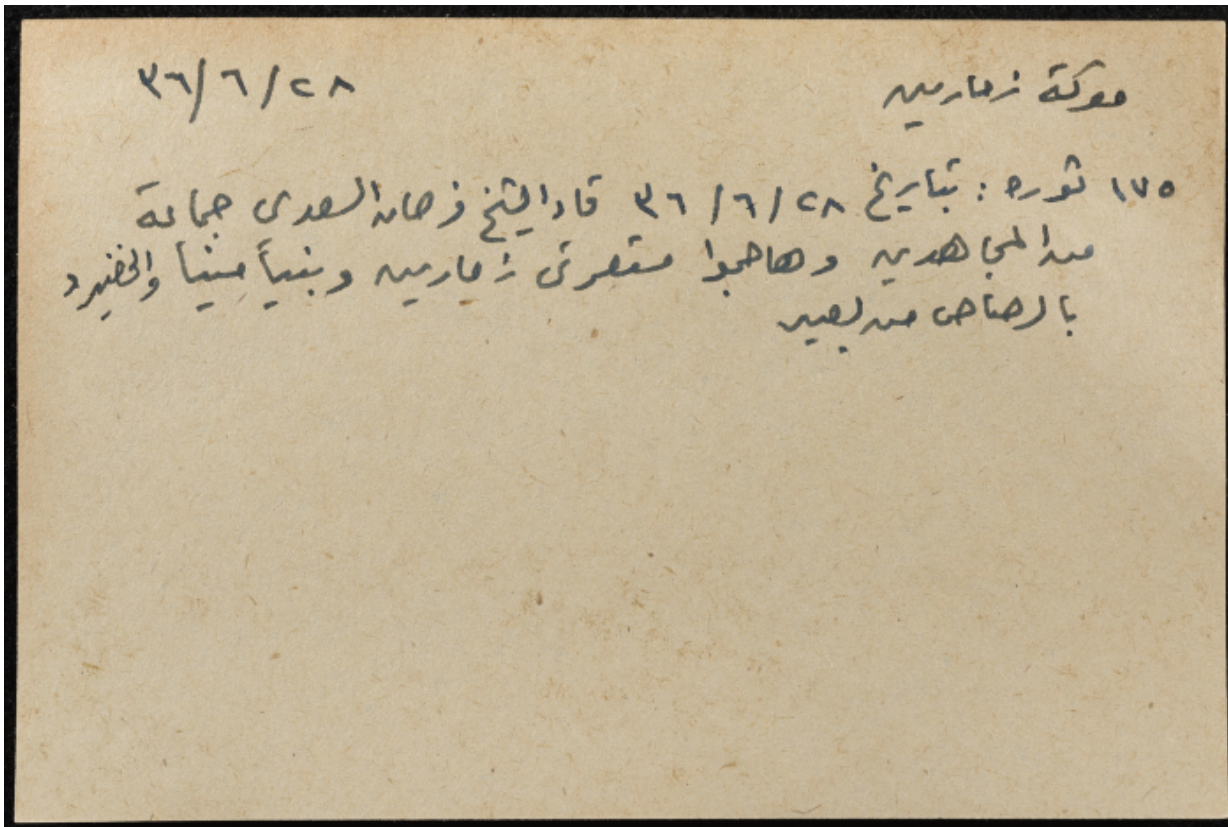 معركة زمارين ٢٨/٦/٣٦
١٧٥ ثوره : بتاريخ ٢٨/٦/٣٦ قاد الشيخ فرحان السعدى جماعة
من المجاهدين وهاجموا مستعمرتى زمارين و
بالرصاص من بعيد